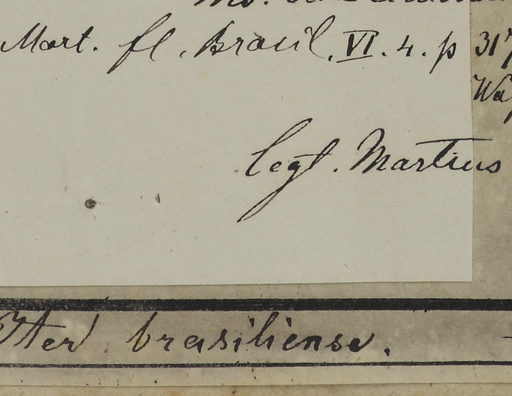 Mart. fl. brasil. VI. 4. p 317
legt. Martius
Iter brasiliense.